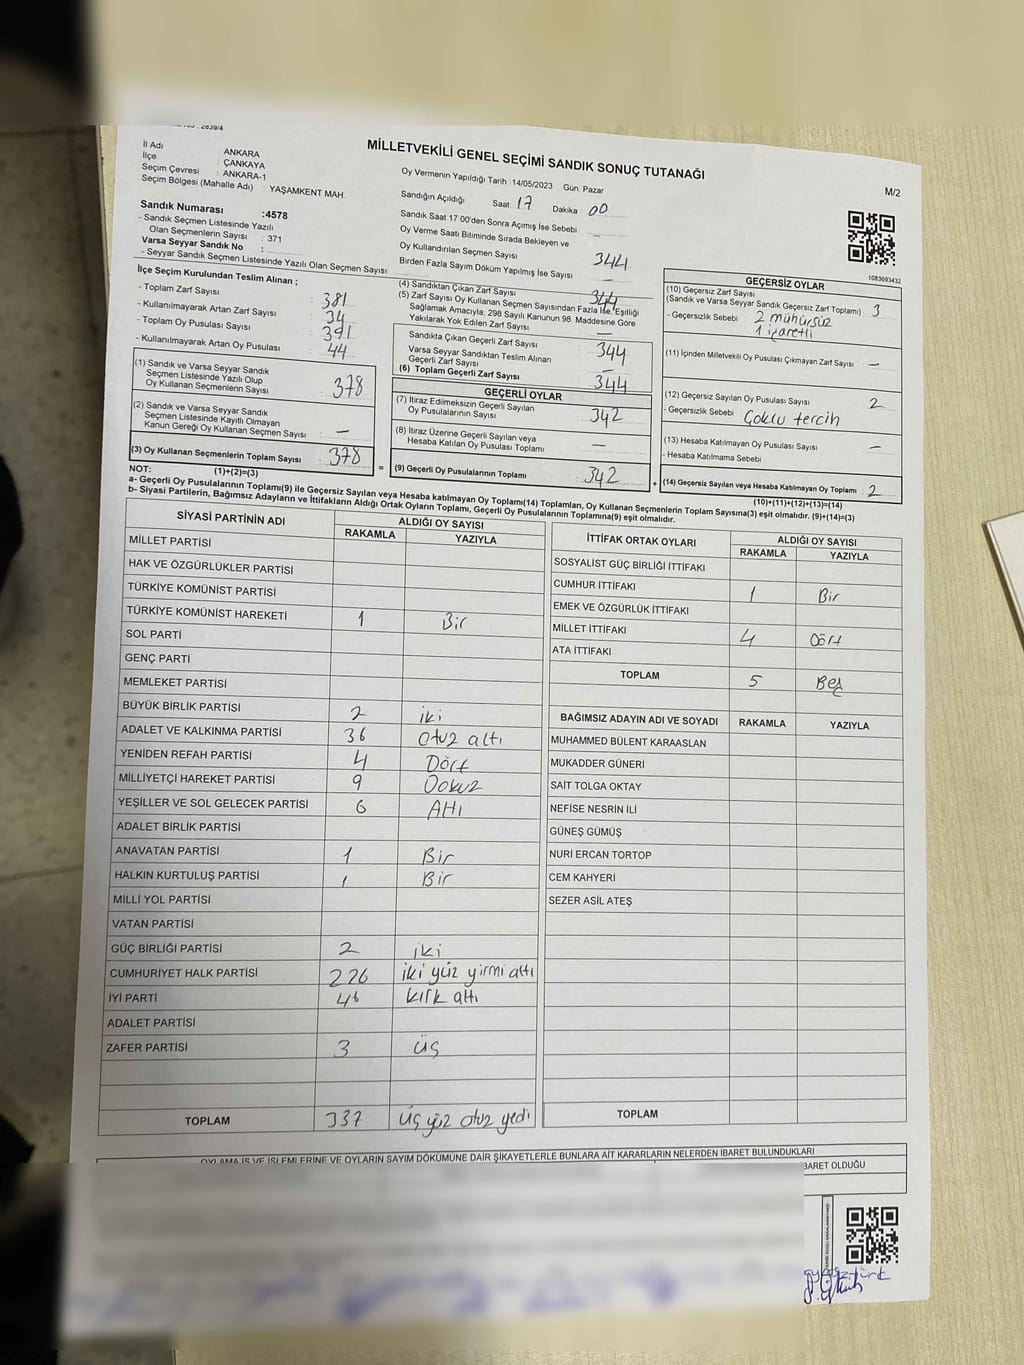 MİLLETVEKİLİ GENEL SEÇİMİ SANDIK SONUÇ TUTANAĞI
M/2
İl Adı : ANKARA
İlçe : ÇANKAYA
Seçim Çevresi : ANKARA-1
Seçim Bölgesi (Mahalle Adı) : YAŞAMKENT MAH.
Sandık Numarası :4578
- Sandık Seçmen Listesinde Yazılı
Olan Seçmenlerin Sayısı : 371
Varsa Seyyar Sandık No :
- Seyyar Sandık Seçmen Listesinde Yazılı Olan Seçmen Sayısı:
Oy Vermenin Yapıldığı Tarih : 14/05/2023 Gün: Pazar
Sandığın Açıldığı Saat 17 Dakika 00
Sandık Saat 17:00'den Sonra Açımış İse Sebebi –
Oy Verme Saati Bitiminde Sırada Bekleyen ve
Oy Kullandırılan Seçmen Sayısı 344
Birden Fazla Sayım Döküm Yapılmış İse Sayısı –
1083693432
İlçe Seçim Kurulundan Teslim Alınan ;
- Toplam Zarf Sayısı : 381
- Kullanılmayarak Artan Zarf Sayısı : 34
- Toplam Oy Pusulası Sayısı : 391
- Kullanılmayarak Artan Oy Pusulası : 44
(1) Sandık ve Varsa Seyyar Sandık
Seçmen Listesinde Yazılı Olup
Oy Kullanan Seçmenlerin Sayısı : 378
(2) Sandık ve Varsa Seyyar Sandık
Seçmen Listesinde Kayıtlı Olmayan
Kanun Gereği Oy Kullanan Seçmen Sayısı : –
(3) Oy Kullanan Seçmenlerin Toplam Sayısı : 378
(4) Sandıktan Çıkan Zarf Sayısı : 344
(5) Zarf Sayısı Oy Kullanan Seçmen Sayısından Fazla İse, Eşitliği
Sağlamak Amacıyla; 298 Sayılı Kanunun 98. Maddesine Göre
Yakılarak Yok Edilen Zarf Sayısı : –
Sandıkta Çıkan Geçerli Zarf Sayısı : 344
Varsa Seyyar Sandıktan Teslim Alınan
Geçerli Zarf Sayısı : –
(6) Toplam Geçerli Zarf Sayısı : 344
GEÇERLİ OYLAR
(7) İtiraz Edilmeksizin Geçerli Sayılan
Oy Pusulalarının Sayısı : 342
(8) İtiraz Üzerine Geçerli Sayılan veya
Hesaba Katılan Oy Pusulası Toplamı : –
= (9) Geçerli Oy Pusulalarının Toplamı : 342
GEÇERSİZ OYLAR
(10) Geçersiz Zarf Sayısı
(Sandık ve Varsa Seyyar Sandık Geçersiz Zarf Toplamı) : 3
- Geçersizlik Sebebi : 2 mühürsüz
1 işaretli
(11) İçinden Milletvekili Oy Pusulası Çıkmayan Zarf Sayısı : –
(12) Geçersiz Sayılan Oy Pusulası Sayısı : 2
- Geçersizlik Sebebi : Çoklu tercih
(13) Hesaba Katılmayan Oy Pusulası Sayısı : –
- Hesaba Katılmama Sebebi :
+ (14) Geçersiz Sayılan veya Hesaba Katılmayan Oy Toplamı : 2
(10)+(11)+(12)+(13)=(14)
NOT: (1)+(2)=(3)
a- Geçerli Oy Pusulalarının Toplamı(9) ile Geçersiz Sayılan veya Hesaba katılmayan Oy Toplamı(14) Toplamları, Oy Kullanan Seçmenlerin Toplam Sayısına(3) eşit olmalıdır. (9)+(14)=(3)
b- Siyasi Partilerin, Bağımsız Adayların ve İttifakların Aldığı Ortak Oyların Toplamı, Geçerli Oy Pusulalarının Toplamına(9) eşit olmalıdır.
SİYASİ PARTİNİN ADI ALDIĞI OY SAYISI
RAKAMLA YAZIYLA
MİLLET PARTİSİ
HAK VE ÖZGÜRLÜKLER PARTİSİ
TÜRKİYE KOMÜNİST PARTİSİ
TÜRKİYE KOMÜNİST HAREKETİ 1 Bir
SOL PARTİ
GENÇ PARTİ
MEMLEKET PARTİSİ
BÜYÜK BİRLİK PARTİSİ 2 iki
ADALET VE KALKINMA PARTİSİ 36 otuz altı
YENİDEN REFAH PARTİSİ 4 Dört
MİLLİYETÇİ HAREKET PARTİSİ 9 Dokuz
YEŞİLLER VE SOL GELECEK PARTİSİ 6 Altı
ADALET BİRLİK PARTİSİ
ANAVATAN PARTİSİ 1 Bir
HALKIN KURTULUŞ PARTİSİ 1 Bir
MİLLİ YOL PARTİSİ
VATAN PARTİSİ
GÜÇ BİRLİĞİ PARTİSİ 2 iki
CUMHURİYET HALK PARTİSİ 226 iki yüz yirmi altı
İYİ PARTİ 46 kırk altı
ADALET PARTİSİ
ZAFER PARTİSİ 3 üç
TOPLAM 337 üç yüz otuz yedi
İTTİFAK ORTAK OYLARI ALDIĞI OY SAYISI
RAKAMLA YAZIYLA
SOSYALİST GÜÇ BİRLİĞİ İTTİFAKI
CUMHUR İTTİFAKI 1 Bir
EMEK VE ÖZGÜRLÜK İTTİFAKI
MİLLET İTTİFAKI 4 Dört
ATA İTTİFAKI
TOPLAM 5 Beş
BAĞIMSIZ ADAYIN ADI VE SOYADI RAKAMLA YAZIYLA
MUHAMMED BÜLENT KARAASLAN
MUKADDER GÜNERİ
SAİT TOLGA OKTAY
NEFİSE NESRİN İLİ
GÜNEŞ GÜMÜŞ
NURİ ERCAN TORTOP
CEM KAHYERİ
SEZER ASİL ATEŞ
TOPLAM
OYLAMA İŞ VE İŞLEMLERİNE VE OYLARIN SAYIM DÖKÜMÜNE DAİR ŞİKAYETLERLE BUNLARA AİT KARARLARIN NELERDEN İBARET BULUNDUKLARI
BARET OLDUĞU